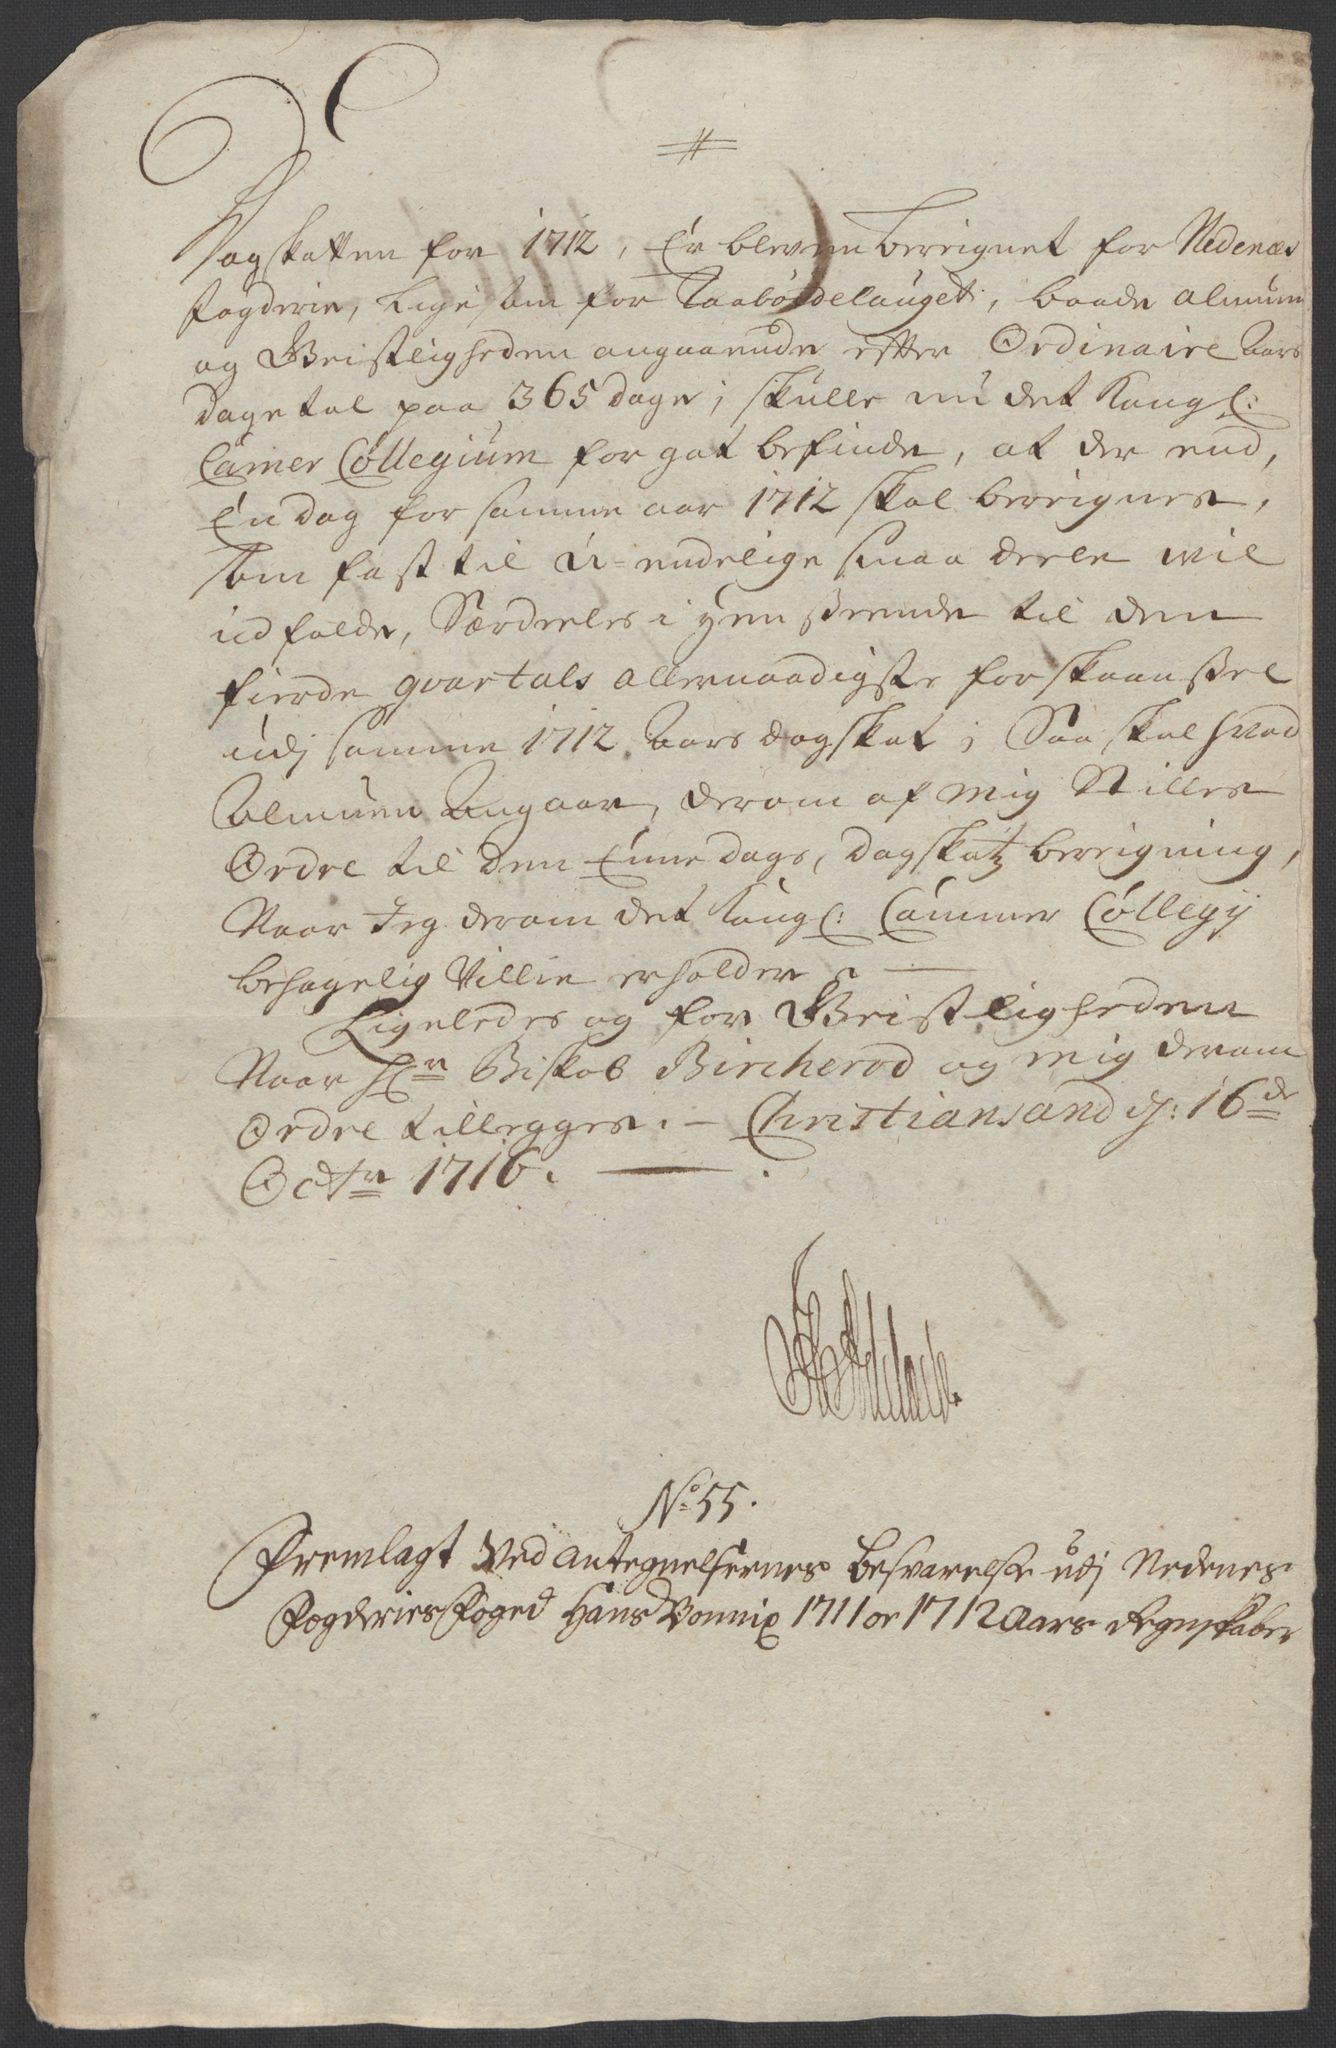 Dagskatten for 1712, Er bleven bereignet for Nedenæs
fogderie, ligesom for Raabøideelauget, baade almuen
og Geistligheden angaaende efter Ordinaire Aars
dagetal paa 365 dage; skulle nu det Kongl:
Camer Collegium for got befinde, at der end,
En dag for samme aar 1712 skal bereignes,
som fast til U-endelige smaa deele vil
udfalde, Særdeeles i henseende til den
fierde qvartals allernaadigste forskaansel
udj samme 1712 Aars dagskat; Saa skal hvad
Almuen Angaar, derom af mig Stilles
Ordre til den Einne dags, dagskatz bereigning,
Naar Jeg derom det Kongl: Cammer Collegij
behagelig Villie erholder. —
Ligeledes og for Geistligheden
Naar Hr Biskob Bircherod og mig derom
Ordre tillegges. — Christiansand d: 16de
Octr 1716. —
No 55.
Fremlagt Ved Antegnelsernes besvarelse udj Nedenes
Fogderies Foged Hans Bonnix 1711 oc 1712 Aars Regnskaber